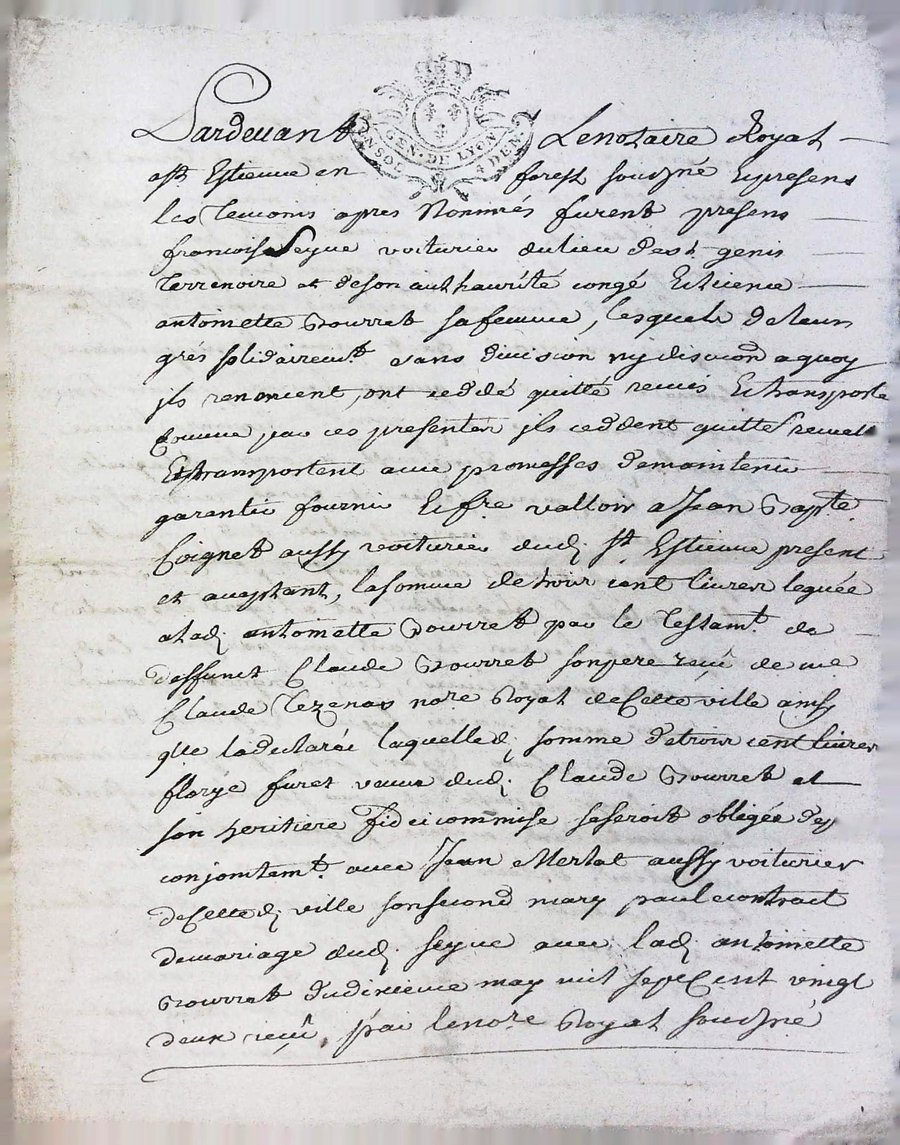 GEN. DE LYON
Pardevant Le notaire Royal
a St Estienne en forest soussigné Et presens
les temoins apres Nommés furent presens
francois Seyve voiturier du lieu de st genis
Terrenoire et de son authaurité congé Et licence
antoinette Bourret sa femme, lesquels de leurs
grés solidairemt. sans division ny discution a quoy
ils renoncent, ont ceddé quitté remis Et transporté
Comme par ces presentes ils ceddent quittes remett
Et transportent avec promesses de maintenir
garantir fournir Et fre valloir a Jean Bapte.
Coignet aussy voiturier dud. St Estienne present
et acceptant, la somme de trois cent livres leguée
a lad. antoinette Bourret par le Testamt. de
deffunct Claude Bourret son pere reçû de me
Claude Tezenas nore Royal de Cette ville ainsy
que la declarée laquelle d. somme de trois cent livres
florye furet veuve dud. Claude Bourret et
son heritiere fideicommise se seroit obligée de
conjointemt. avec Jean Merlat aussy voiturier
de Cette d. ville son second mary par le contract
de mariage dud. seyve avec lad. antoinette
Bourret du dixieme may mil sept Cent vingt
deux reçû par le nore Royal soussigné